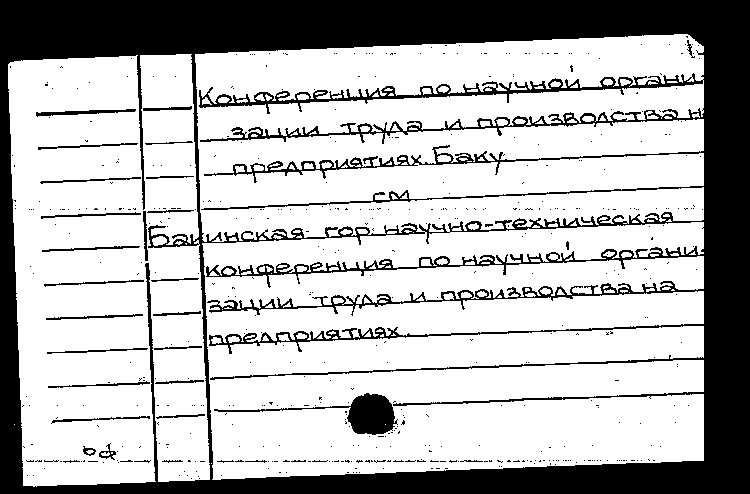 Конференция по научной органи-
зации труда и производства на
предприятиях. Баку
см
Бакинская гор. научно-техническая
конференция по научной органи-
зации труда и производства на
предприятиях.